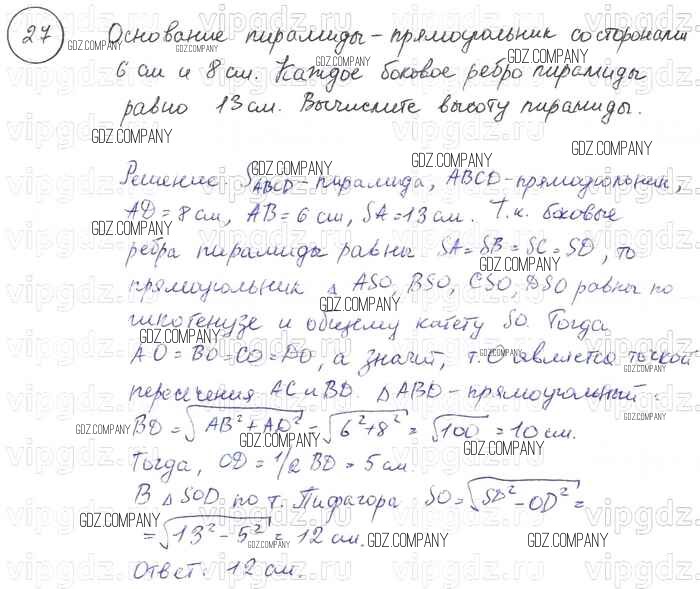 27 Основание пирамиды - прямоугольник со сторонами
6 см и 8 см. Каждое боковое ребро пирамиды
равно 13 см. Вычислите высоту пирамиды.
Решение: SABCD - пирамида, ABCD - прямоугольник,
AD = 8 см, AB = 6 см, SA = 13 см. Т.к. боковые
ребра пирамиды равны SA = SB = SC = SD, то
прямоугольник △ ASO, BSO, CSO, DSO равны по
гипотенузе и общему катету SO. Тогда
AO = BO = CO = DO, а значит, т. O является точкой
пересечения AC и BD. △ ABD - прямоугольный:
BD = √AB² + AD² = √6² + 8² = √100 = 10 см.
Тогда, OD = 1/2 BD = 5 см.
В △ SOD по т. Пифагора SO = √SD² - OD² =
= √13² - 5² = 12 см.
Ответ: 12 см.
GDZ.COMPANY
vipgdz.ru